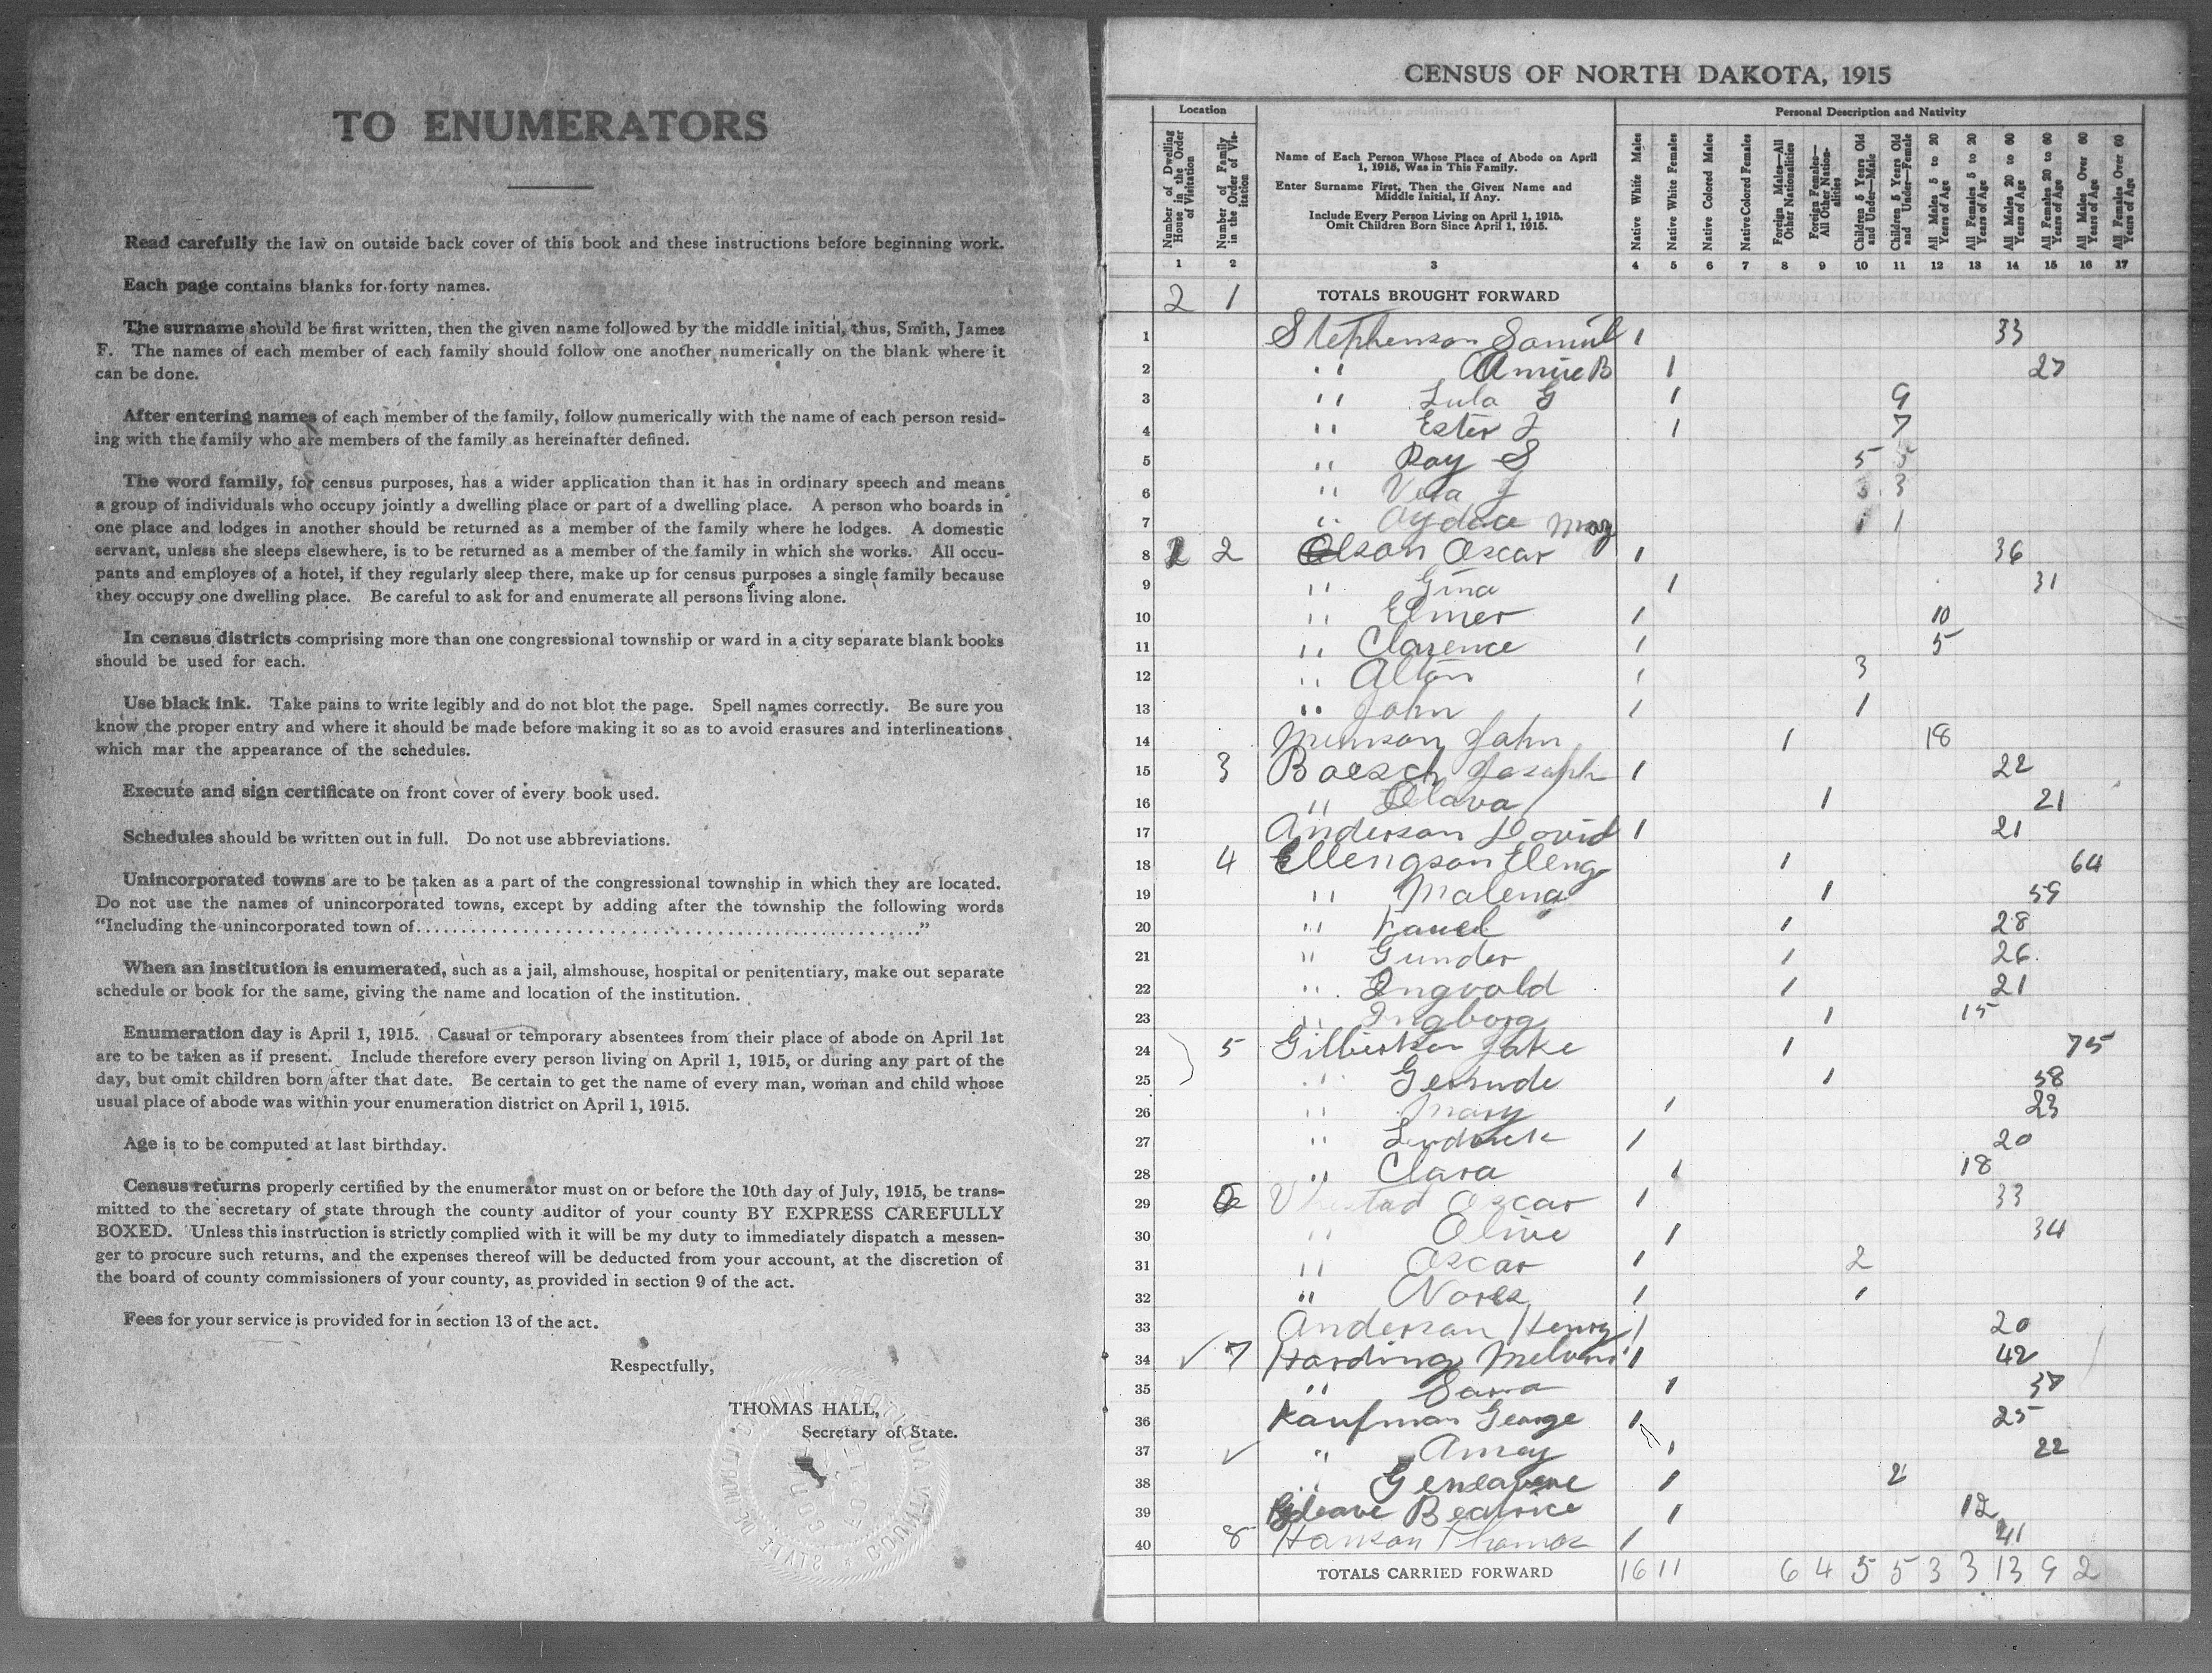 TO ENUMERATORS
Read carefully the law on outside back cover of this book and these instructions before beginning work.
Each page contains blanks for forty names.
The surname should be first written, then the given name followed by the middle initial, thus, Smith, James
F. The names of each member of each family should follow one another numerically on the blank where it
can be done.
After entering names of each member of the family, follow numerically with the name of each person resid-
ing with the family who are members of the family as hereinafter defined.
The word family, for census purposes, has a wider application than it has in ordinary speech and means
a group of individuals who occupy jointly a dwelling place or part of a dwelling place. A person who boards in
one place and lodges in another should be returned as a member of the family where he lodges. A domestic
servant, unless she sleeps elsewhere, is to be returned as a member of the family in which she works. All occu-
pants and employes of a hotel, if they regularly sleep there, make up for census purposes a single family because
they occupy one dwelling place. Be careful to ask for and enumerate all persons living alone.
In census districts comprising more than one congressional township or ward in a city separate blank books
should be used for each.
Use black ink. Take pains to write legibly and do not blot the page. Spell names correctly. Be sure you
know the proper entry and where it should be made before making it so as to avoid erasures and interlineations
which mar the appearance of the schedules.
Execute and sign certificate on front cover of every book used.
Schedules should be written out in full. Do not use abbreviations.
Unincorporated towns are to be taken as a part of the congressional township in which they are located.
Do not use the names of unincorporated towns, except by adding after the township the following words
"Including the unincorporated town of.................................................."
When an institution is enumerated, such as a jail, almshouse, hospital or penitentiary, make out separate
schedule or book for the same, giving the name and location of the institution.
Enumeration day is April 1, 1915. Casual or temporary absentees from their place of abode on April 1st
are to be taken as if present. Include therefore every person living on April 1, 1915, or during any part of the
day, but omit children born after that date. Be certain to get the name of every man, woman and child whose
usual place of abode was within your enumeration district on April 1, 1915.
Age is to be computed at last birthday.
Census returns properly certified by the enumerator must on or before the 10th day of July, 1915, be trans-
mitted to the secretary of state through the county auditor of your county BY EXPRESS CAREFULLY
BOXED. Unless this instruction is strictly complied with it will be my duty to immediately dispatch a messen-
ger to procure such returns, and the expenses thereof will be deducted from your account, at the discretion of
the board of county commissioners of your county, as provided in section 9 of the act.
Fees for your service is provided for in section 13 of the act.
Respectfully,
THOMAS HALL,
Secretary of State.
CENSUS OF NORTH DAKOTA, 1915
Location
Personal Description and Nativity
Number of Dwelling House in the Order of Visitation
Number of Family in the Order of Visitation
Name of Each Person Whose Place of Abode on April
1, 1915, Was in This Family.
Enter Surname First, Then the Given Name and
Middle Initial, If Any.
Include Every Person Living on April 1, 1915.
Omit Children Born Since April 1, 1915.
Native White Males
Native White Females
Native Colored Males
Native Colored Females
Foreign Males—All Other Nationalities
Foreign Females—All Other Nationalities
Children 5 Years Old and Under—Male
Children 5 Years Old and Under—Female
All Males 5 to 20 Years of Age
All Females 5 to 20 Years of Age
All Males 20 to 60 Years of Age
All Females 20 to 60 Years of Age
All Males Over 60 Years of Age
All Females Over 60 Years of Age
1 2 3 4 5 6 7 8 9 10 11 12 13 14 15 16 17
2 1 TOTALS BROUGHT FORWARD
1 Stephenson Samul 1 33
2 " Annie B 1 27
3 " Lula G 1 9
4 " Ester J 1 7
5 " Ray S 5 5
6 " Vera J 3 3
7 " May 1 1
8 2 2 Olson Oscar 1 36
9 " Gina 1 31
10 " Elmer 1 10
11 " Clarence 1 5
12 " Alton 1 3
13 " John 1 1
14 Munson John 1 18
15 3 Boesch Joseph 1 22
16 " Olava 1 21
17 Anderson David 1 21
18 4 Ellengson Eleng 1 64
19 " Malena 1 59
20 " 1 28
21 " Gunder 1 26
22 " Ingvald 1 21
23 " Ingborg 1 15
24 5 Gilbertson Jake 1 75
25 " Gertrude 1 58
26 " Mary 1 23
27 " Ludvick 1 20
28 " Clara 1 18
29 6 Oscar 1 33
30 " Olive 1 34
31 " Oscar 1 2
32 " 1 1
33 Anderson Henry 1 20
34 ✓ 7 Harding Melvin 1 42
35 " Sarra 1 37
36 Kaufman George 1 25
37 ✓ " Amey 1 22
38 " 1 2
39 Beatrice 1 12
40 8 Hanson Thomas 1 41
TOTALS CARRIED FORWARD 16 11 6 4 5 5 3 3 13 9 2